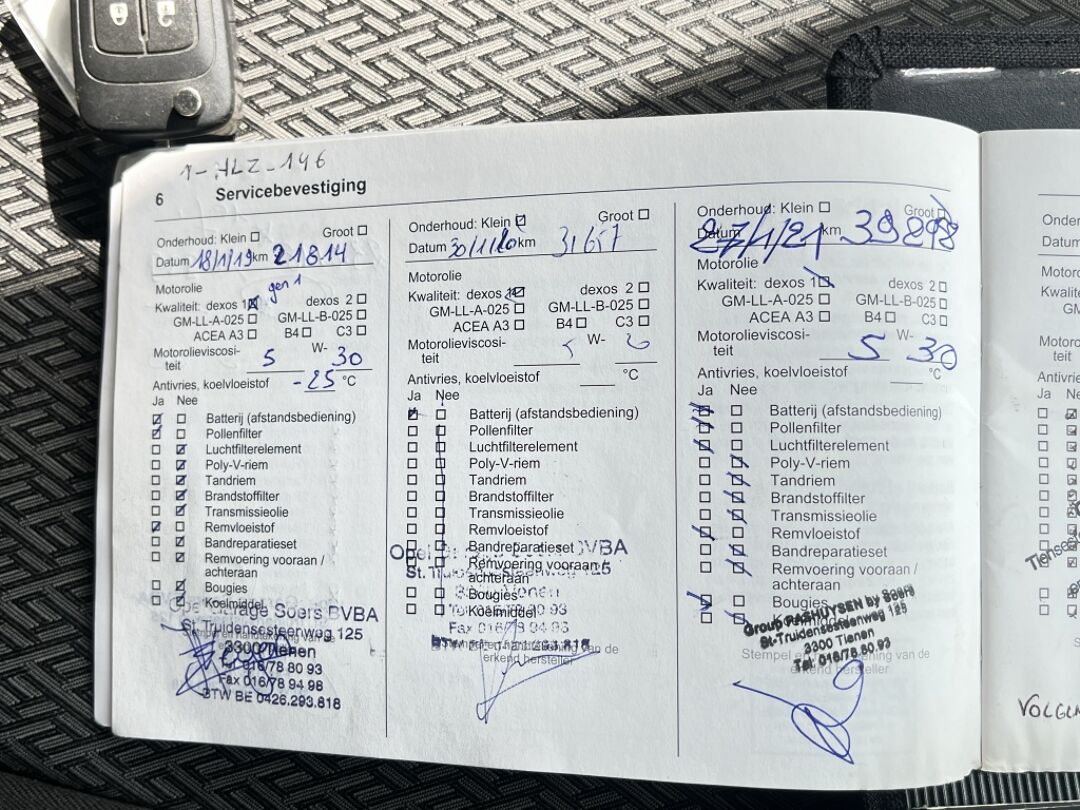 1-HLZ-146
6 Servicebevestiging
Onderhoud: Klein Groot
Datum 18/1/19 km 21814
Motorolie
gen 1
Kwaliteit: dexos 1 dexos 2
GM-LL-A-025 GM-LL-B-025
ACEA A3 B4 C3
Motorolieviscosi-
teit 5 W- 30
Antivries, koelvloeistof -25 °C
Ja Nee
Batterij (afstandsbediening)
Pollenfilter
Luchtfilterelement
Poly-V-riem
Tandriem
Brandstoffilter
Transmissieolie
Remvloeistof
Bandreparatieset
Remvoering vooraan /
achteraan
Bougies
Koelmiddel
Garage Soers BVBA
St. Truidensesteenweg 125
3300 Tienen
Tel 016/78 80 93
Fax 016/78 94 98
BTW BE 0426.293.818
Onderhoud: Klein Groot
Datum 30/1/20 km 31657
Motorolie
Kwaliteit: dexos dexos 2
GM-LL-A-025 GM-LL-B-025
ACEA A3 B4 C3
Motorolieviscosi-
teit W-
Antivries, koelvloeistof °C
Ja Nee
Batterij (afstandsbediening)
Pollenfilter
Luchtfilterelement
Poly-V-riem
Tandriem
Brandstoffilter
Transmissieolie
Remvloeistof
Bandreparatieset
Remvoering vooraan /
achteraan
Bougies
Koelmiddel
Opel BVBA
125
erkend hersteller
Onderhoud: Klein Groot
Datum 27/1/21 km 39298
Motorolie
Kwaliteit: dexos 1 dexos 2
GM-LL-A-025 GM-LL-B-025
ACEA A3 B4 C3
Motorolieviscosi-
teit 5 W- 30
Antivries, koelvloeistof °C
Ja Nee
Batterij (afstandsbediening)
Pollenfilter
Luchtfilterelement
Poly-V-riem
Tandriem
Brandstoffilter
Transmissieolie
Remvloeistof
Bandreparatieset
Remvoering vooraan /
achteraan
Bougies
Group PASHUYSEN by Soers
St-Truidensesteenweg 125
3300 Tienen
Tel. 016/78.80.93
Stempel en van de
erkend hersteller
Ja